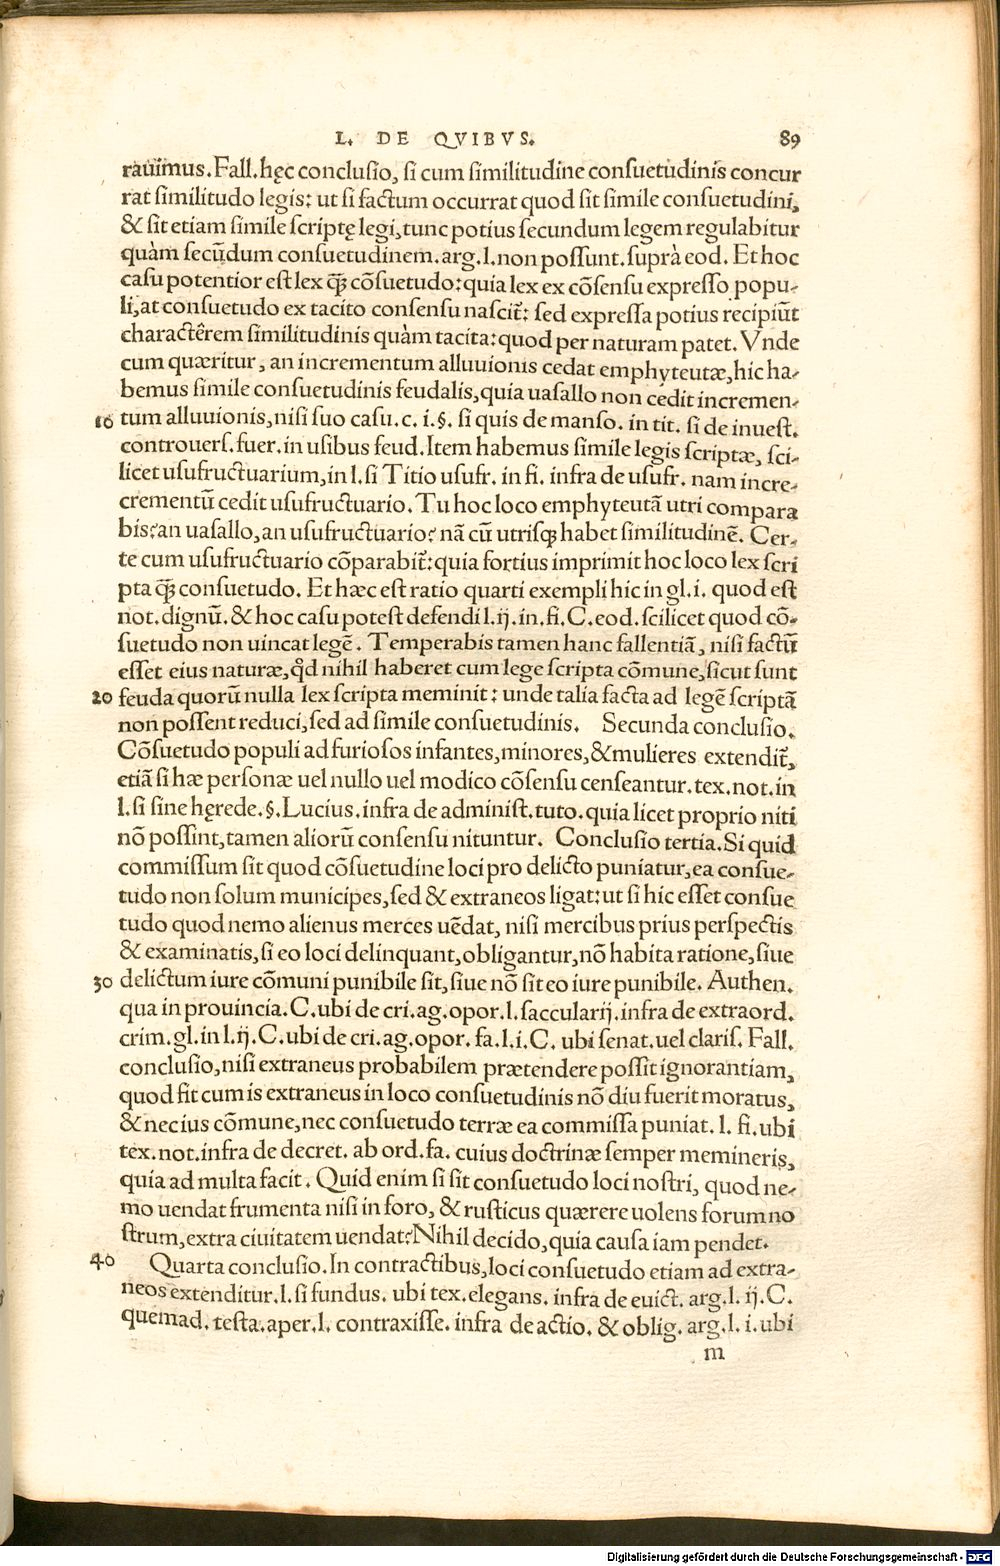 L. DE QVIBVS. 89
rauimus. Fall. hęc conclusio, si cum similitudine consuetudinis concur
rat similitudo legis: ut si factum occurrat quod sit simile consuetudini,
& sit etiam simile scriptę legi, tunc potius secundum legem regulabitur
quàm secũdum consuetudinem. arg. l. non possunt. suprà eod. Et hoc
casu potentior est lex q̃ cõsuetudo: quia lex ex cõsensu expresso popu-
li, at consuetudo ex tacito consensu nascit̃: sed expressa potius recipiũt
charactêrem similitudinis quàm tacita: quod per naturam patet. Vnde
cum quæritur, an incrementum alluuionis cedat emphyteutæ, hic ha-
bemus simile consuetudinis feudalis, quia uasallo non cedit incremen-
10 tum alluuionis, nisi suo casu. c. i. §. si quis de manso. in tit. si de inuest.
controuers. fuer. in usibus feud. Item habemus simile legis scriptæ, sci-
licet usufructuarium, in l. si Titio usufr. in fi. infra de usufr. nam incre-
crementũ cedit usufructuario. Tu hoc loco emphyteutã utri compara
bis? an uasallo, an usufructuario? nã cũ utrisq; habet similitudinẽ. Cer-
te cum usufructuario cõparabit̃: quia fortius imprimit hoc loco lex scri
pta q̃ consuetudo. Et hæc est ratio quarti exempli hic in gl. i. quod est
not. dignũ. & hoc casu potest defendi l. ij. in. fi. C. eod. scilicet quod cõ-
suetudo non uincat legẽ. Temperabis tamen hanc fallentiã, nisi factũ
esset eius naturæ, qd̃ nihil haberet cum lege scripta cõmune, sicut sunt
20 feuda quorũ nulla lex scripta meminit: unde talia facta ad legẽ scriptã
non possent reduci, sed ad simile consuetudinis. Secunda conclusio.
Cõsuetudo populi ad furiosos infantes, minores, & mulieres extendit̃,
etiã si hæ personæ uel nullo uel modico cõsensu censeantur. tex. not. in
l. si sine hęrede. §. Lucius. infra de administ. tuto. quia licet proprio niti
nõ possint, tamen aliorũ consensu nituntur. Conclusio tertia. Si quid
commissum sit quod cõsuetudine loci pro delicto puniatur, ea consue-
tudo non solum municipes, sed & extraneos ligat: ut si hic esset consue
tudo quod nemo alienus merces uẽdat, nisi mercibus prius perspectis
& examinatis, si eo loci delinquant, obligantur, nõ habita ratione, siue
30 delictum iure cõmuni punibile sit, siue nõ sit eo iure punibile. Authen.
qua in prouincia. C. ubi de cri. ag. opor. l. saccularij. infra de extraord.
crim. gl. in l. ij. C. ubi de cri. ag. opor. fa. l. i. C. ubi senat. uel claris. Fall.
conclusio, nisi extraneus probabilem prætendere possit ignorantiam,
quod fit cum is extraneus in loco consuetudinis nõ diu fuerit moratus,
& nec ius cõmune, nec consuetudo terræ ea commissa puniat. l. fi. ubi
tex. not. infra de decret. ab ord. fa. cuius doctrinæ semper memineris,
quia ad multa facit. Quid enim si sit consuetudo loci nostri, quod ne-
mo uendat frumenta nisi in foro, & rusticus quærere uolens forum no
strum, extra ciuitatem uendat? Nihil decido, quia causa iam pendet.
40 Quarta conclusio. In contractibus, loci consuetudo etiam ad extra-
neos extenditur. l. si fundus. ubi tex. elegans. infra de euict. arg. l. ij. C.
quemad. testa. aper. l. contraxisse. infra de actio. & oblig. arg. l. i. ubi
m
Digitalisierung gefördert durch die Deutsche Forschungsgemeinschaft - DFG